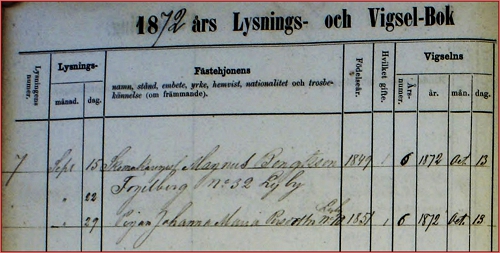 1872 års Lysnings- och Vigsel-Bok
Lysningens numer.
Lysnings-
månad.
dag.
Fästehjonens
namn, stånd, embete, yrke, hemvist, nationalitet och trosbe-
kännelse (om främmande).
Födelseår.
Hvilket gifte.
Vigselns
Års-numer.
år.
mån.
dag.
7 Sept 15 Magnus Bengtsson 1849 1 6 1872 Oct. 13
" 22 Fogelberg No 32 Lyby
" 29 Pigan Johanna Maria Lyby 1851 1 6 1872 Oct. 13